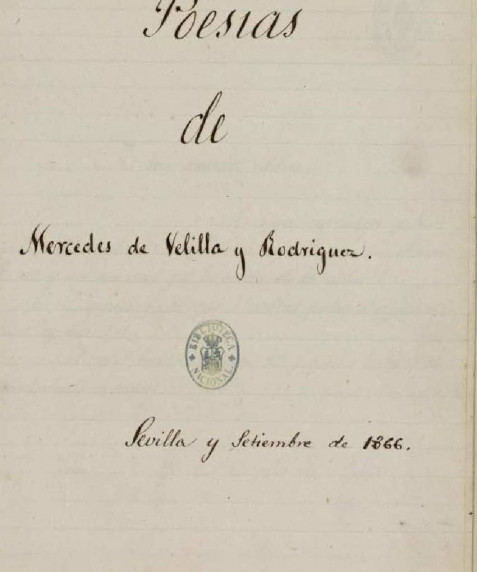 Poesias
de
Mercedes de Velilla y Rodriguez.
BIBLIOTECA
NACIONAL
Sevilla y Setiembre de 1866.